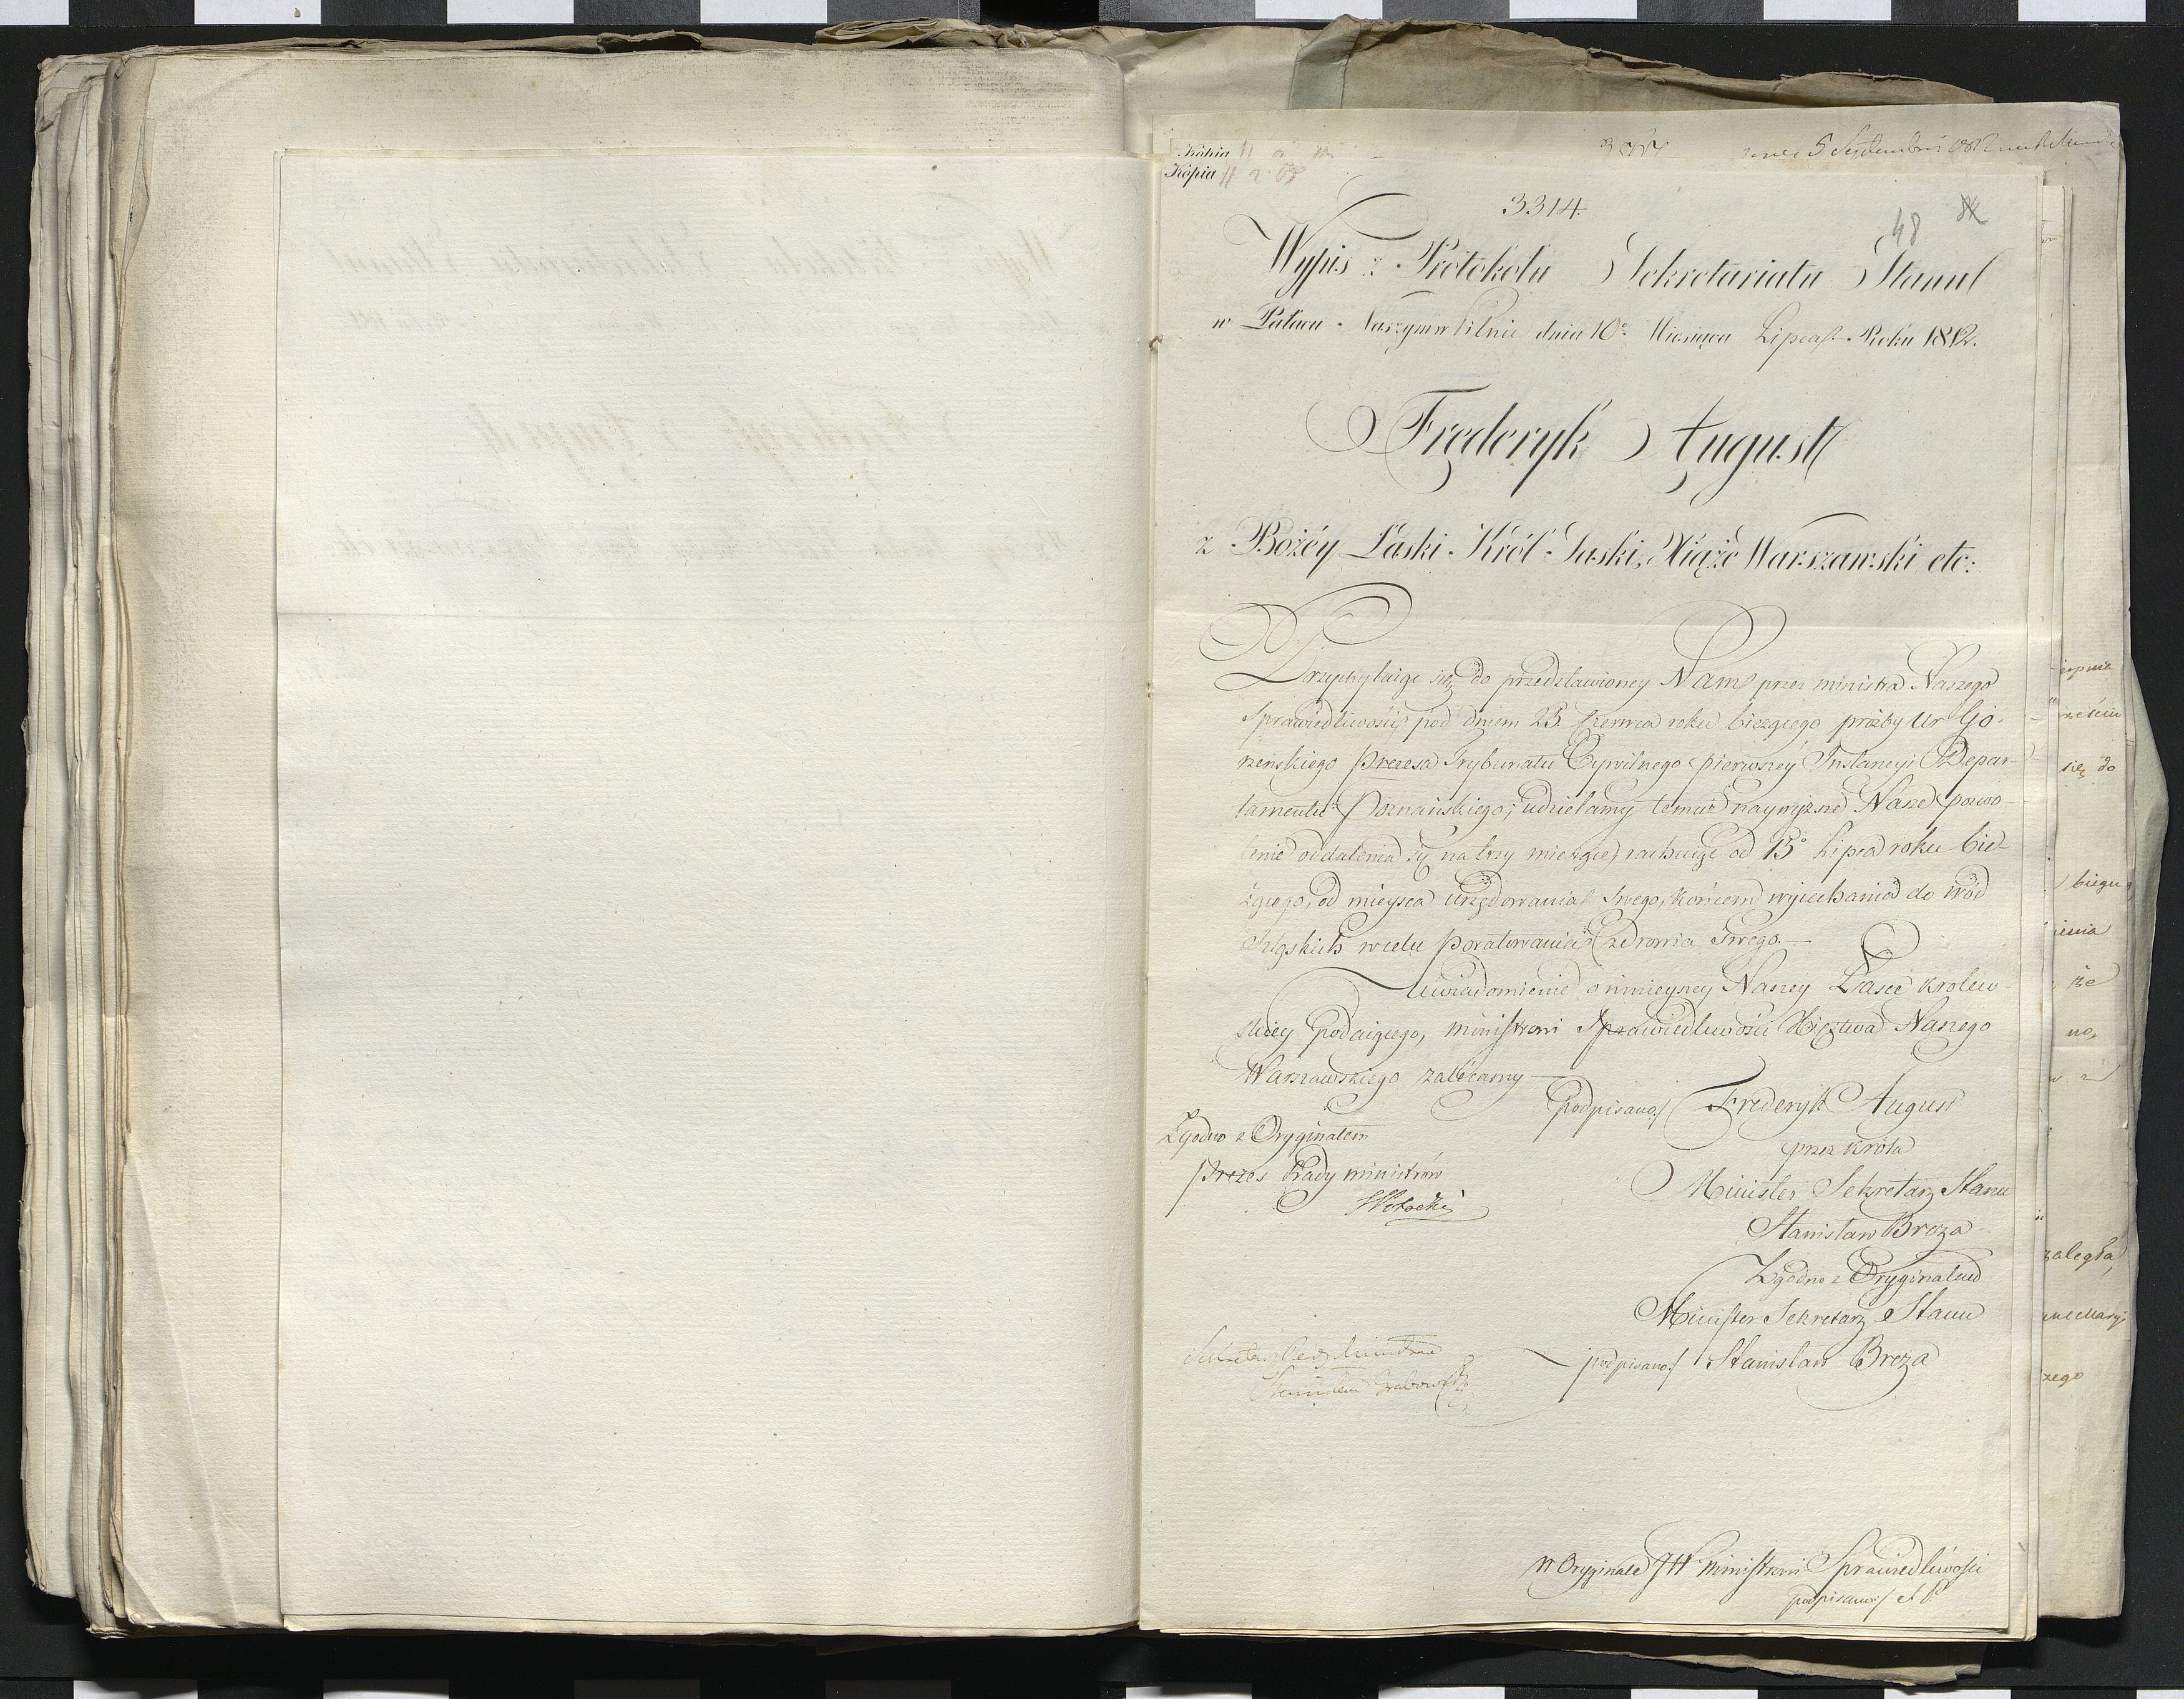 Kopia
Kopia
3314.
48
Wypis z Protokołu Sekretariatu Stanu
w Pałacu Naszym w Pilnic dnia 10° Miesiąca Lipca Roku 1812.
Frederyk August
z Bożéy Łaski Król Saski, Xiąże Warszawski etc:
Przychylaiąc się do przedstawioney Nam przez ministra Naszego
Sprawiedliwości pod dniem 25 Czerwca roku bieżącego prośby Ur Go-
rzenskiego Prezesa Trybunału Cywilnego pierwszey Instancyi Depar-
tamentu Poznańskiego; udzielamy temuż naywyższe Nasze pozwo-
lenie oddalenia się na trzy miesiące, rachuiąc od 15° Lipca roku bie-
żącego, od mieysca urzędowania swego, końcem wyiechania do wód
Szląskich w celu poratowania zdrowia swego.—
Uwiadomienie o ninieyszey Naszey Łasce królew-
skiey podaiącego, ministrowi Sprawiedliwości Xięztwa Naszego
Warszawskiego zalecamy—
podpisano/ Frederyk August
przez Króla
Minister Sekretarz Stanu
Stanisław Breza
Zgodno z Oryginałem
Minister Sekretarz Stanu
podpisano/ Stanisław Breza
Zgodno z Oryginałem
Prezes Rady ministrów
Sekretarz Rady Ministrów
Stanisław Grabowski
W Oryginale JW ministrowi Sprawiedliwości
podpisano/
się do
biegu
że
zaległa,